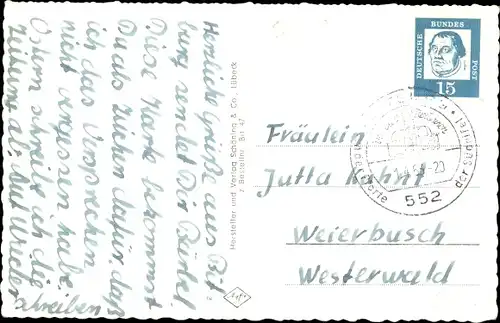 Herzliche Grüße aus Bit-
burg sendet Dir Bärbel
Diese Karte bekommst
Du als Zeichen dafür, daß
ich das Versprechen
nicht vergessen habe.
Ostern schreib ich die
Auf Wieder
schreiben
Hersteller und Verlag Schöning & Co., Lübeck
z Bestellnr. Bit 47
DEUTSCHE BUNDES POST
15
552
der Eifel
Fräulein
Jutta Kahnt
Weierbusch
Westerwald